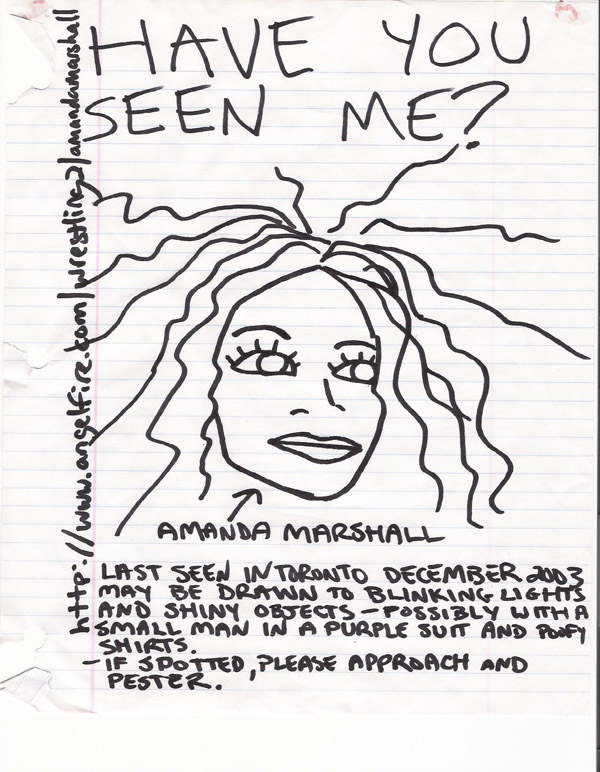 HAVE YOU
SEEN ME?
http://www.angelfire.com/wrestling2/amandamarshall
AMANDA MARSHALL
LAST SEEN IN TORONTO DECEMBER 2003
MAY BE DRAWN TO BLINKING LIGHTS
AND SHINY OBJECTS - POSSIBLY WITH A
SMALL MAN IN A PURPLE SUIT AND POOFY
SHIRTS.
- IF SPOTTED, PLEASE APPROACH AND
PESTER.